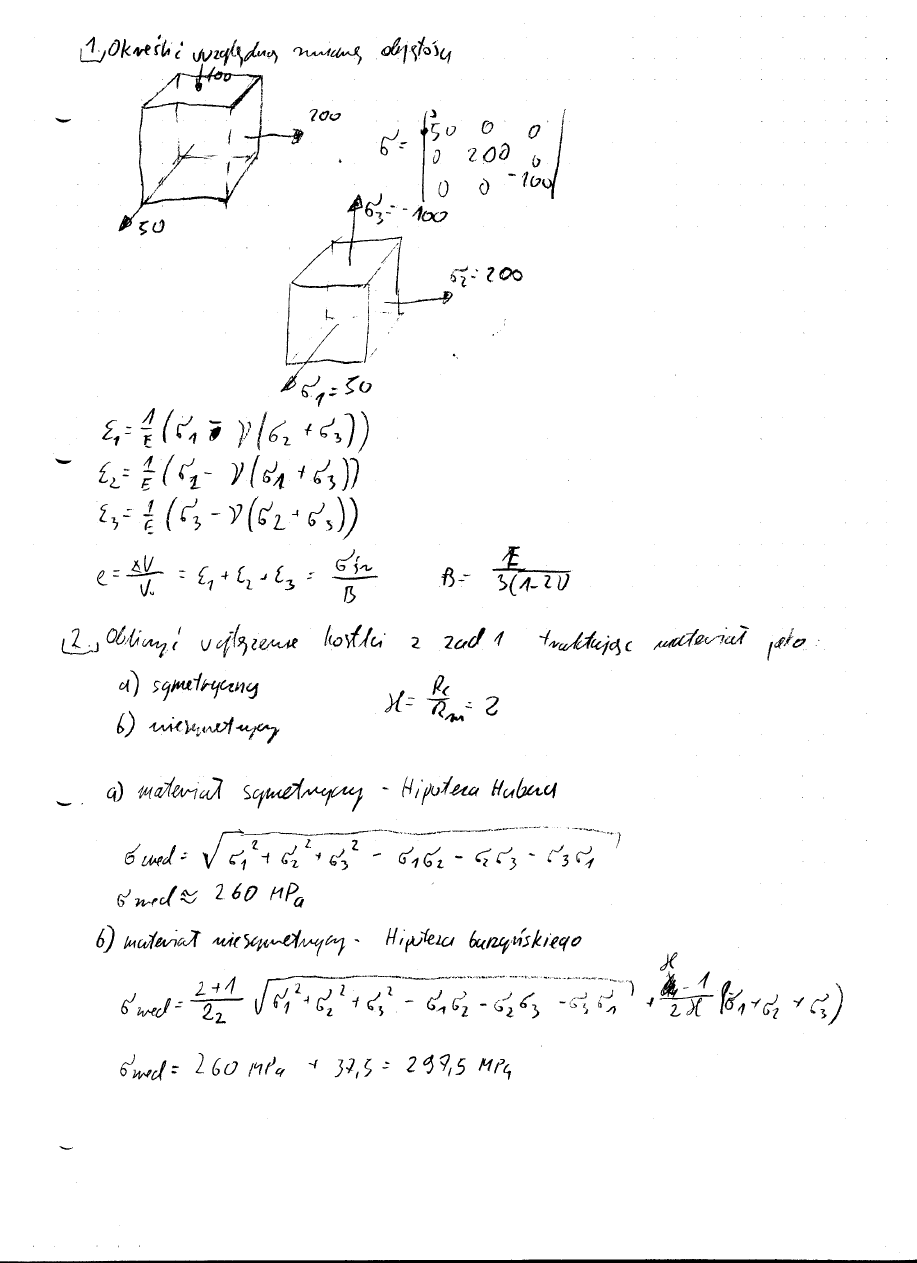 1. Określić względną zmianę objętości
100
200
50
σ = | 50 0 0 |
| 0 200 0 |
| 0 0 -100 |
σ₃ = -100
σ₂ = 200
σ₁ = 50
ε₁ = 1/E (σ₁ - ν(σ₂ + σ₃))
ε₂ = 1/E (σ₂ - ν(σ₁ + σ₃))
ε₃ = 1/E (σ₃ - ν(σ₂ + σ₃))
e = ΔV/V₀ = ε₁ + ε₂ + ε₃ = σśr/B B = E/3(1-2ν)
2. Obliczyć wytężenie kostki z zad 1 traktując materiał jako:
a) symetryczny
ϰ = Rc/Rm = 2
b) niesymetrycy
a) materiał symetrycy - Hipoteza Hubera
σ wed = √(σ₁² + σ₂² + σ₃² - σ₁σ₂ - σ₂σ₃ - σ₃σ₁)
σ wed ≈ 260 MPa
b) materiał niesymetrycy - Hipoteza burzyńskiego
σ wed = 2+1/22 √(σ₁² + σ₂² + σ₃² - σ₁σ₂ - σ₂σ₃ - σ₃σ₁) + ϰ-1/2ϰ (σ₁ + σ₂ + σ₃)
σ wed = 260 MPa + 37,5 = 297,5 MPa